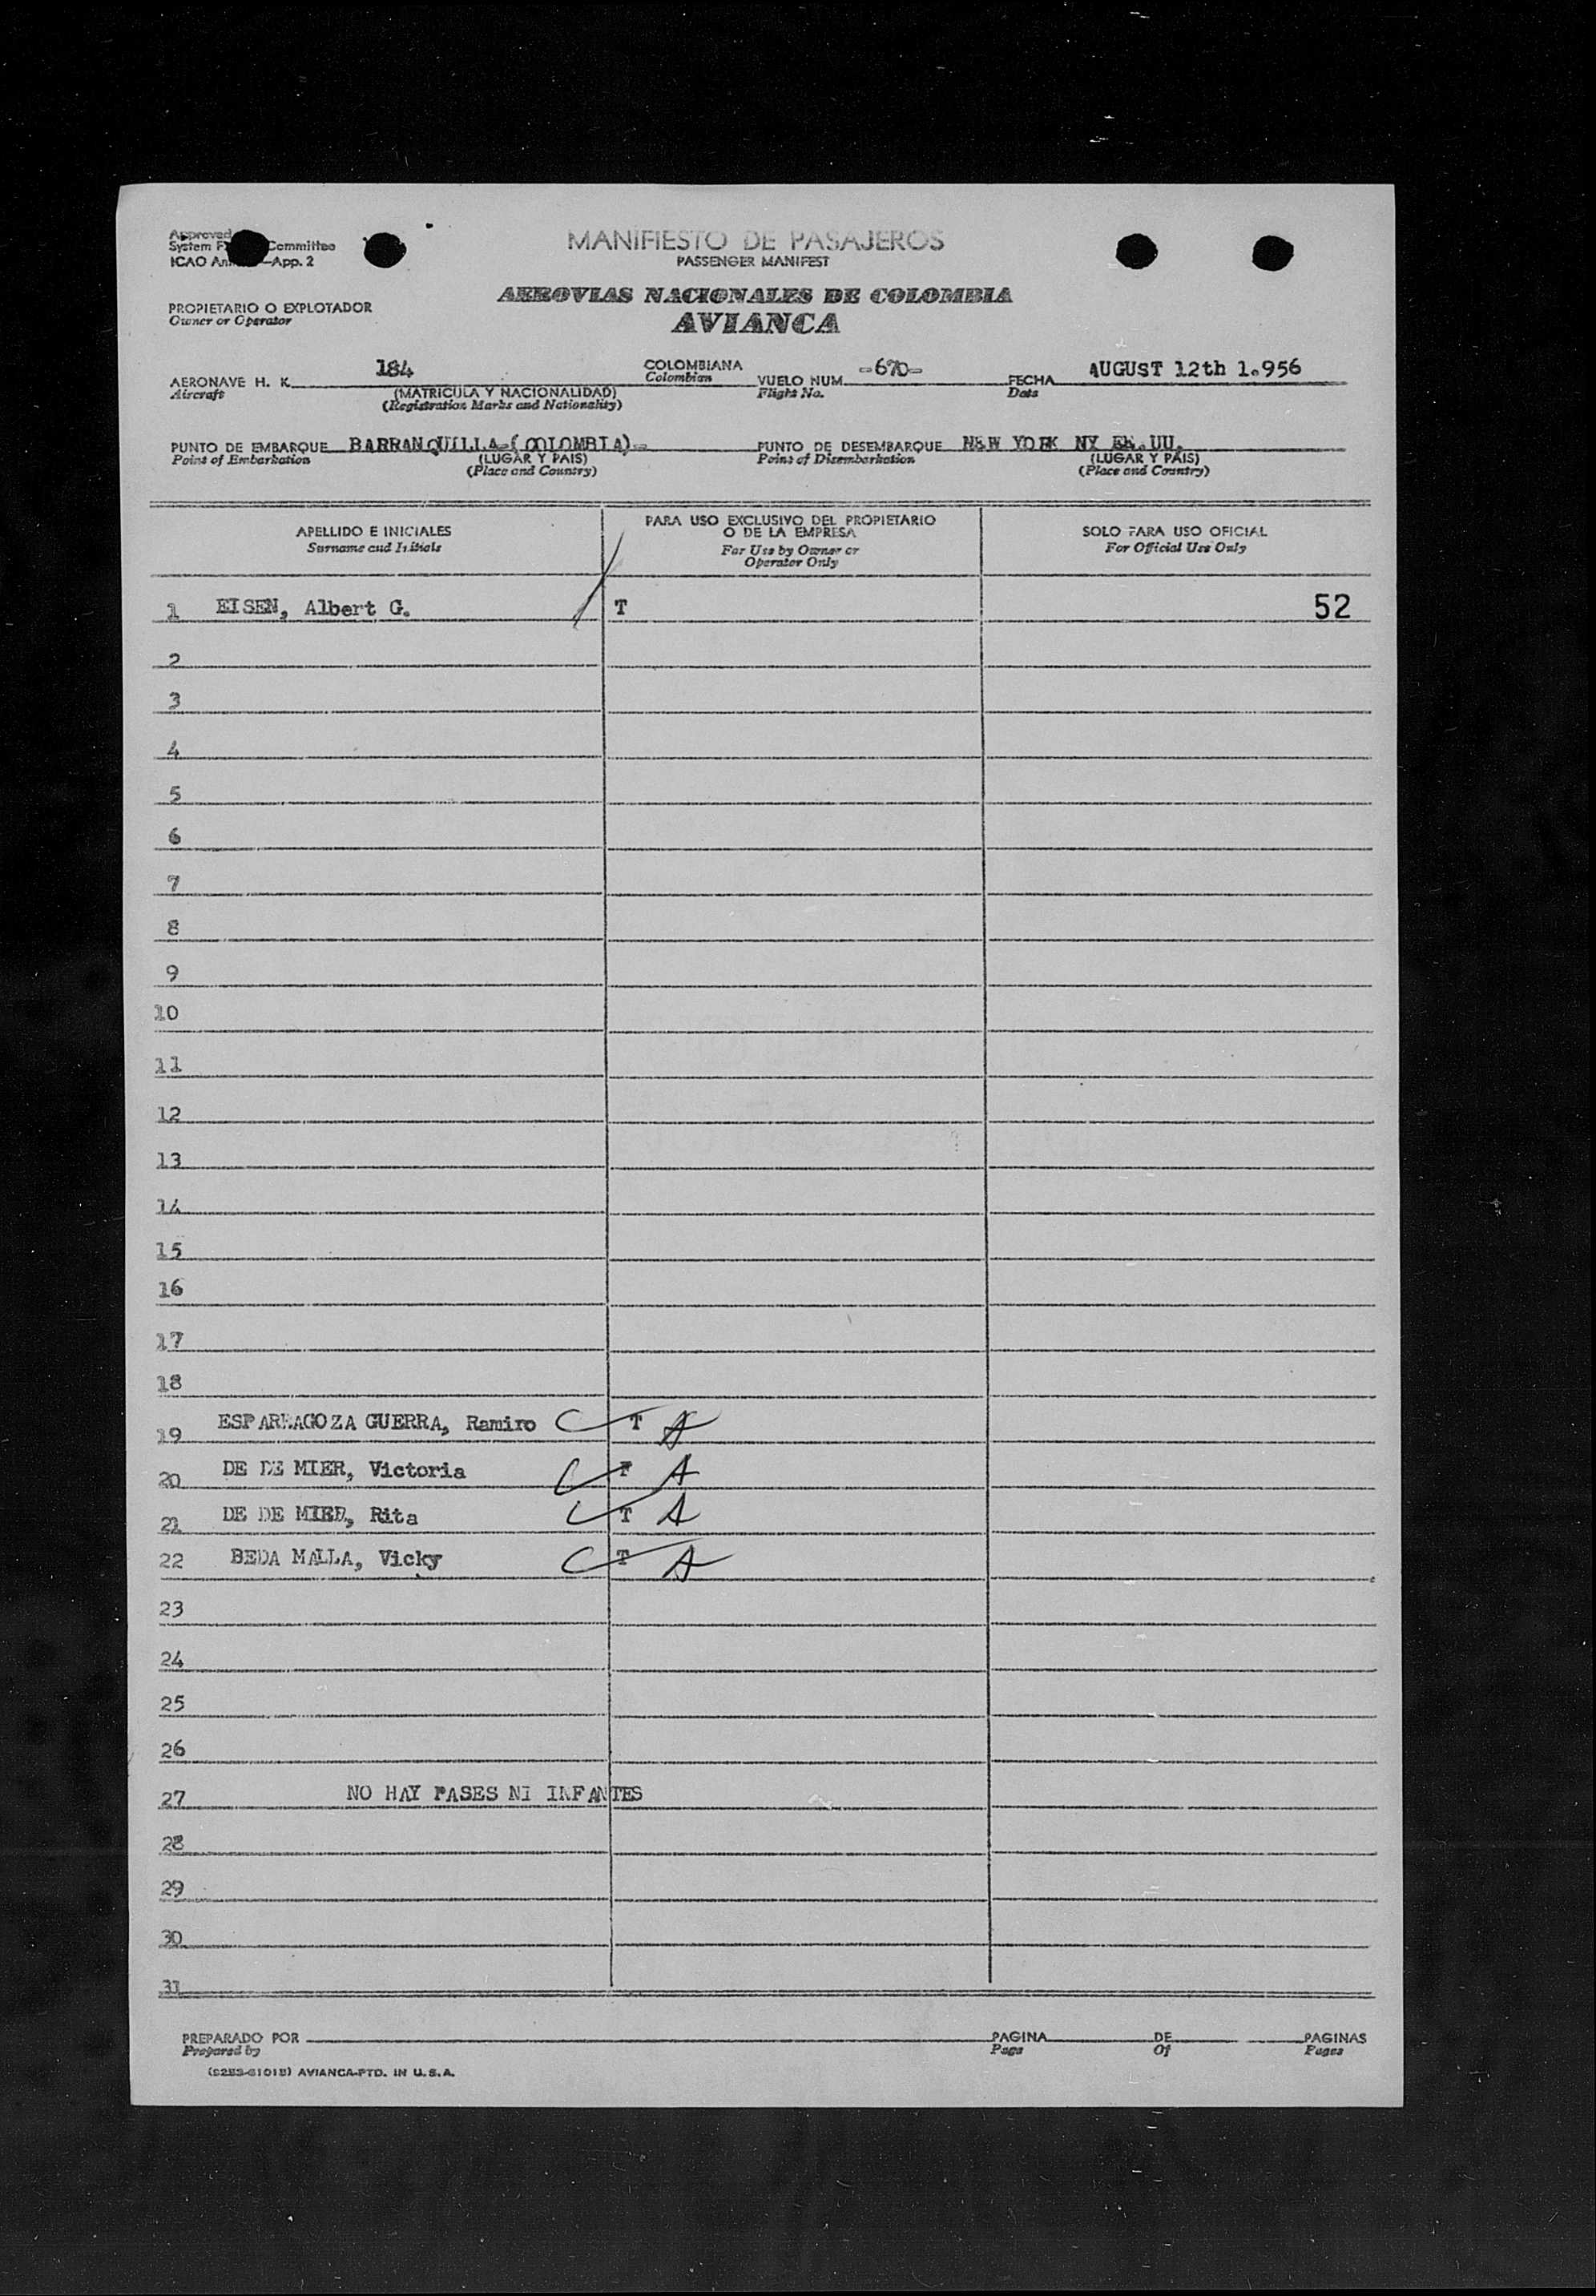 Approved
System F Committee
ICAO An —App. 2
MANIFIESTO DE PASAJEROS
PASSENGER MANIFEST
PROPIETARIO O EXPLOTADOR
Owner or Operator
AEROVIAS NACIONALES DE COLOMBIA
AVIANCA
AERONAVE H. K. 184 COLOMBIANA VUELO NUM. -670- FECHA AUGUST 12th 1.956
Aircraft (MATRICULA Y NACIONALIDAD) Colombian Flight No. Date
(Registration Marks and Nationality)
PUNTO DE EMBARQUE BARRANQUILLA-(COLOMBIA)- PUNTO DE DESEMBARQUE NEW YORK NY EE.UU.
Point of Embarkation (LUGAR Y PAIS) Point of Disembarkation (LUGAR Y PAIS)
(Place and Country) (Place and Country)
APELLIDO E INICIALES PARA USO EXCLUSIVO DEL PROPIETARIO O DE LA EMPRESA SOLO PARA USO OFICIAL
Surname and Initials For Use by Owner or Operator Only For Official Use Only
1 EISEN, Albert G. T 52
2
3
4
5
6
7
8
9
10
11
12
13
14
15
16
17
18
19 ESPARRAGOZA GUERRA, Ramiro T A
20 DE DE MIER, Victoria T A
21 DE DE MIER, Rita T A
22 BEDA MALLA, Vicky T A
23
24
25
26
27 NO HAY PASES NI INFANTES
28
29
30
31
PREPARADO POR PAGINA DE PAGINAS
Prepared by Page Of Pages
AVIANCA-PTD. IN U.S.A.